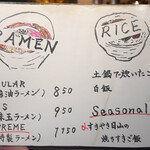 RAMEN
ULAR
醤油ラーメン) 850
S
味玉ラーメン) 950
PREME
特製ラーメン) 1150
RICE
土鍋で炊いたご
白飯
Seasonal
すきやき日山の
焼りすきご飯